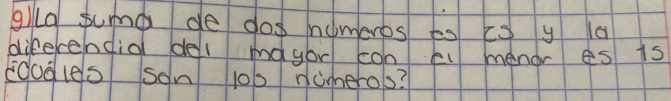 9) La suma de dos números es y la
diferencia del mayor con el menor es 15
¿Cuáles son los números?